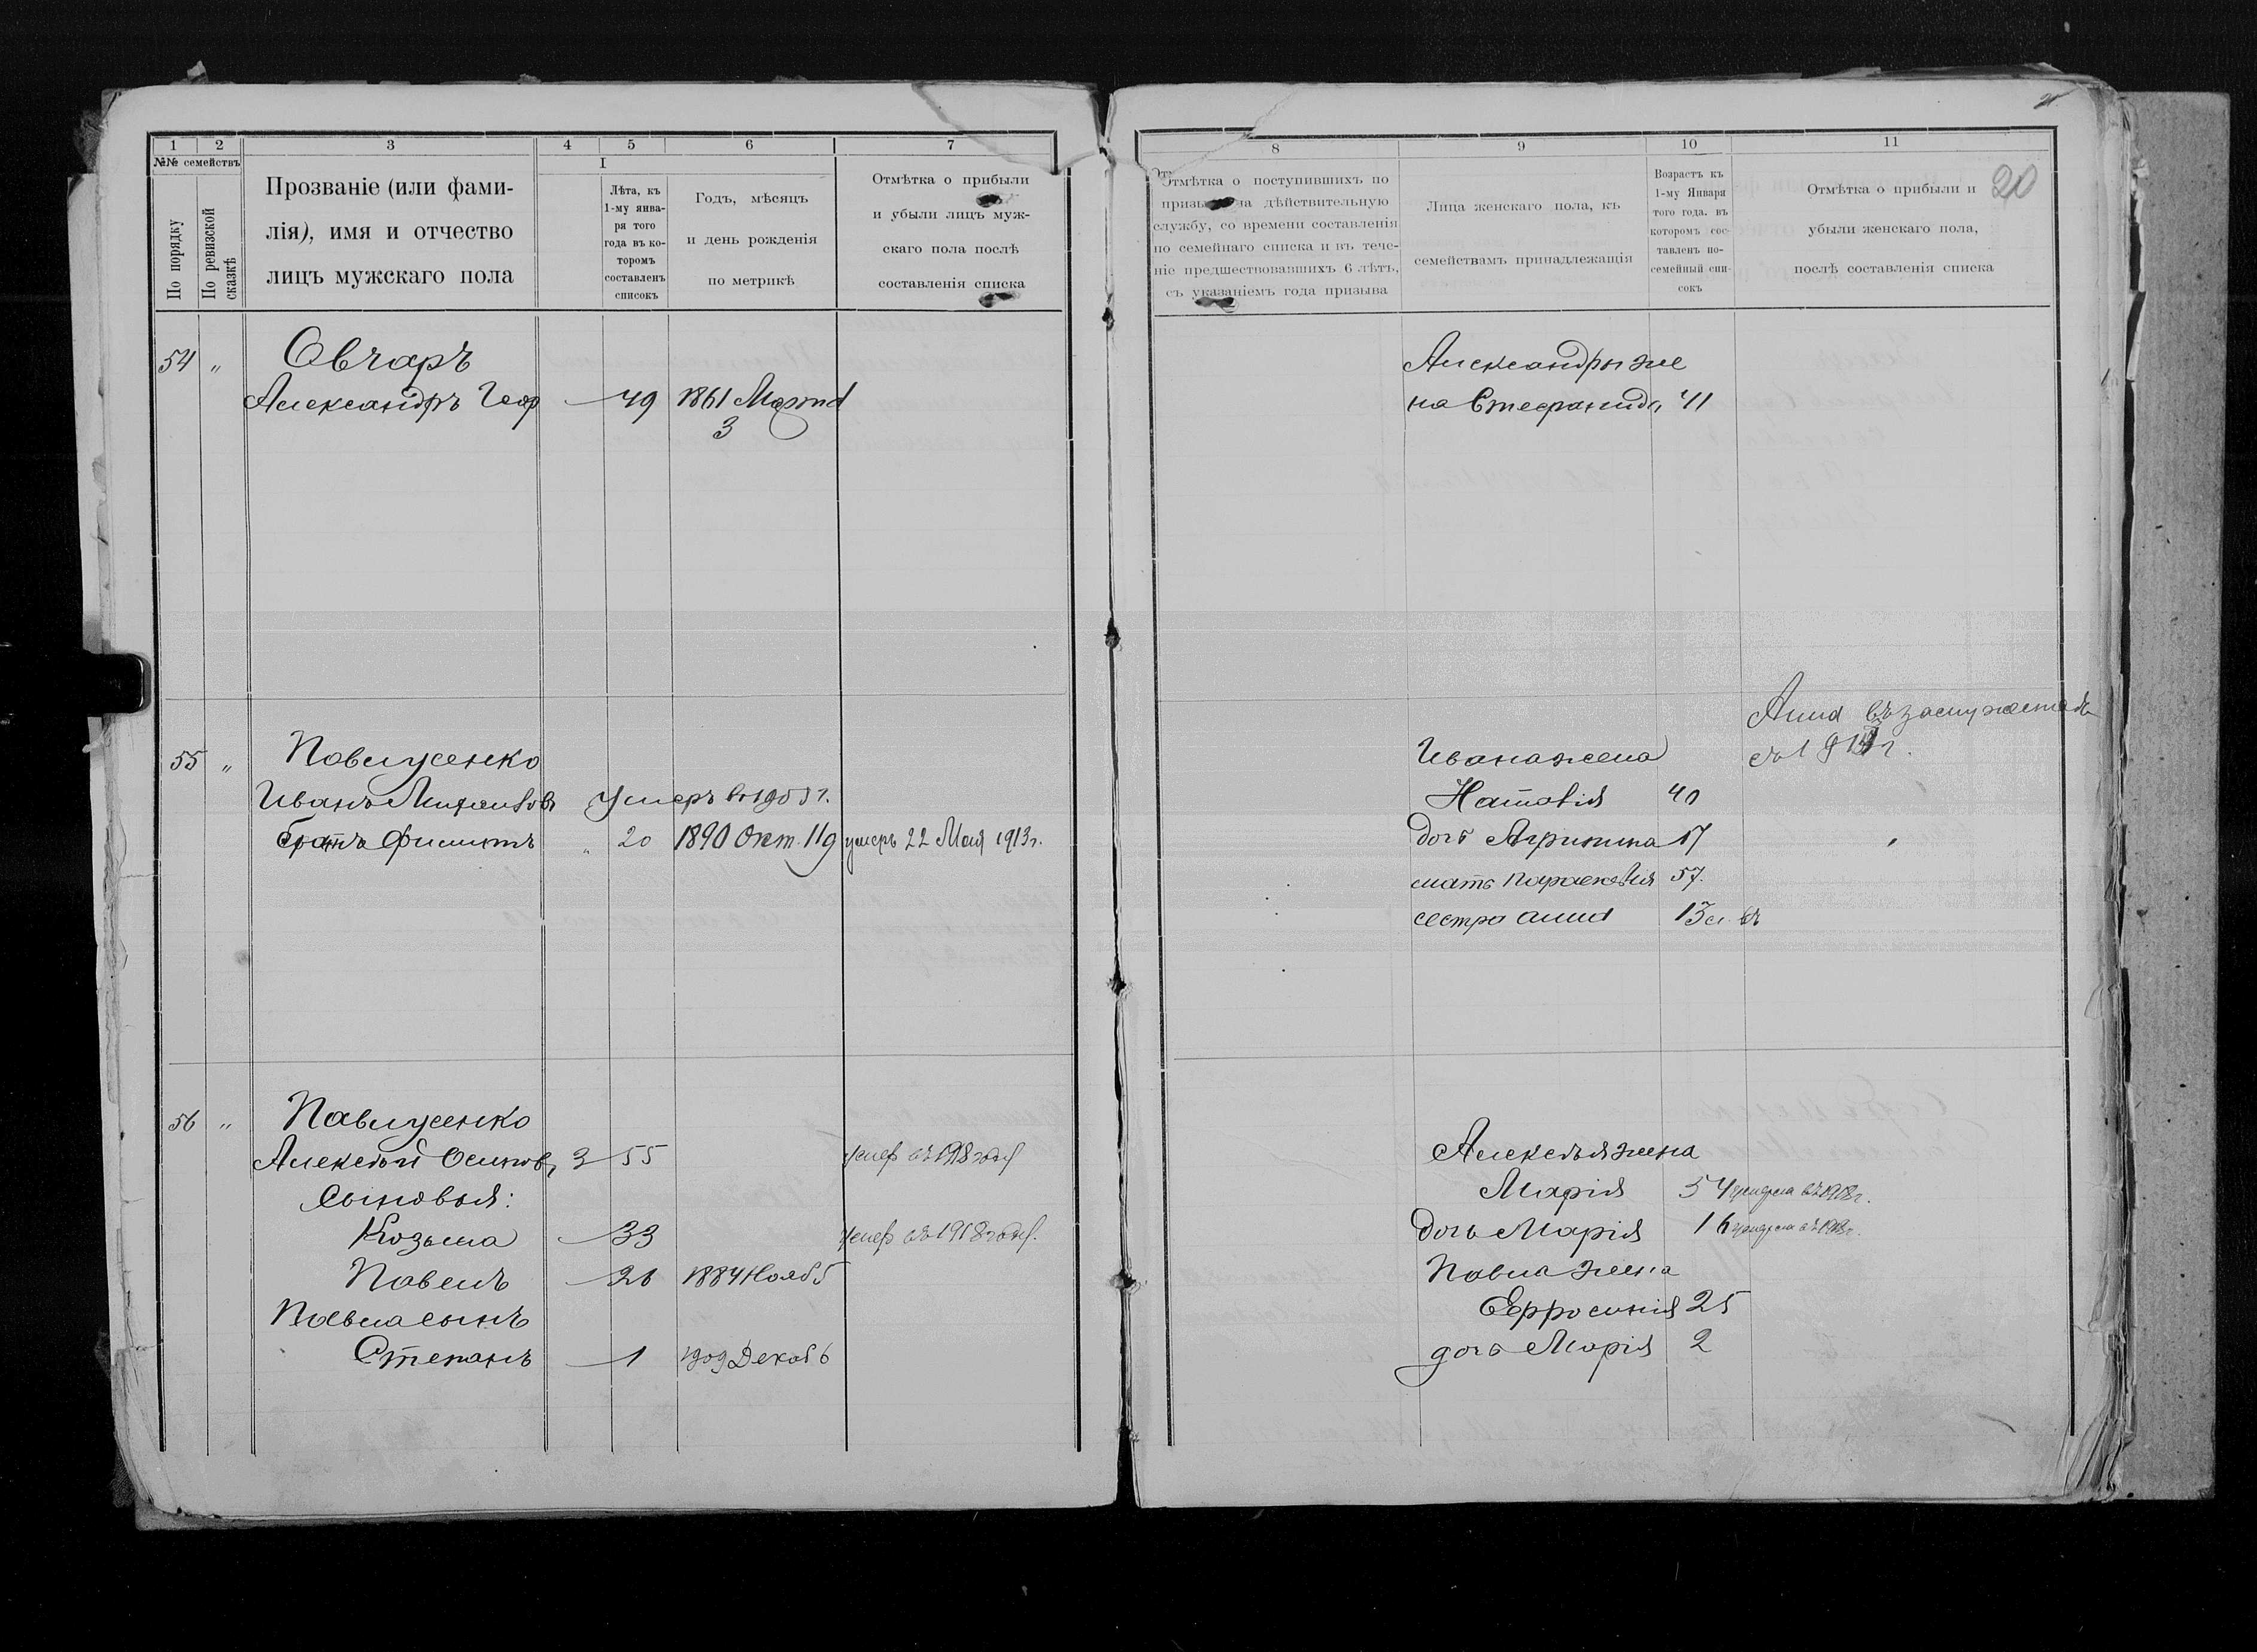 1 2 3 4 5 6 7
№№ семействъ
По порядку
По ревизской сказкѣ
Прозваніе (или фами-
лія), имя и отчество
лицъ мужскаго пола
I
Лѣта, къ
1-му янва-
ря того
года въ ко-
торомъ
составленъ
списокъ
Годъ, мѣсяцъ
и день рожденія
по метрикѣ
Отмѣтка о прибыли
и убыли лицъ муж-
скаго пола послѣ
составленія списка
54 " Овчаръ
Александръ Геор 49 1861 Марта
3
55 " Павлусенко
Иванъ Умеръ въ 1905 г.
братъ Филиппъ " 20 1890 Окт. 19 умеръ 22 Мая 1913 г.
56 " Павлусенко
Алексѣй Осипов 3 55 умер въ 1918 году
сыновья:
Козьма 33 умер въ 1918 году.
Павелъ 26 1884 Нояб 5
Павла сынъ
Степанъ 1 1909 Декаб 6
8 9 10 11
Отмѣтка о поступившихъ по
призыву на дѣйствительную
службу, со времени составленія
по семейнаго списка и въ тече-
ніе предшествовавшихъ 6 лѣтъ,
съ указаніемъ года призыва
Лица женскаго пола, къ
семействамъ принадлежащія
Возрастъ къ
1-му Января
того года. въ
которомъ сос-
тавленъ по-
семейный спи-
сокъ
Отмѣтка о прибыли и
убыли женскаго пола,
послѣ составленія списка
20
Александры же
на Стефанида 41
Анна въ замужествѣ
Ивана жена
Наталія 40
дочь Агрипина 17
мать Параскевія 57.
сестра Анна 13
Алексѣя жена
Марія 54 умерла въ 1918 г.
дочь Марія 16 умерла въ 1918 г.
Павла жена
Ефросинія 25
дочь Марія 2